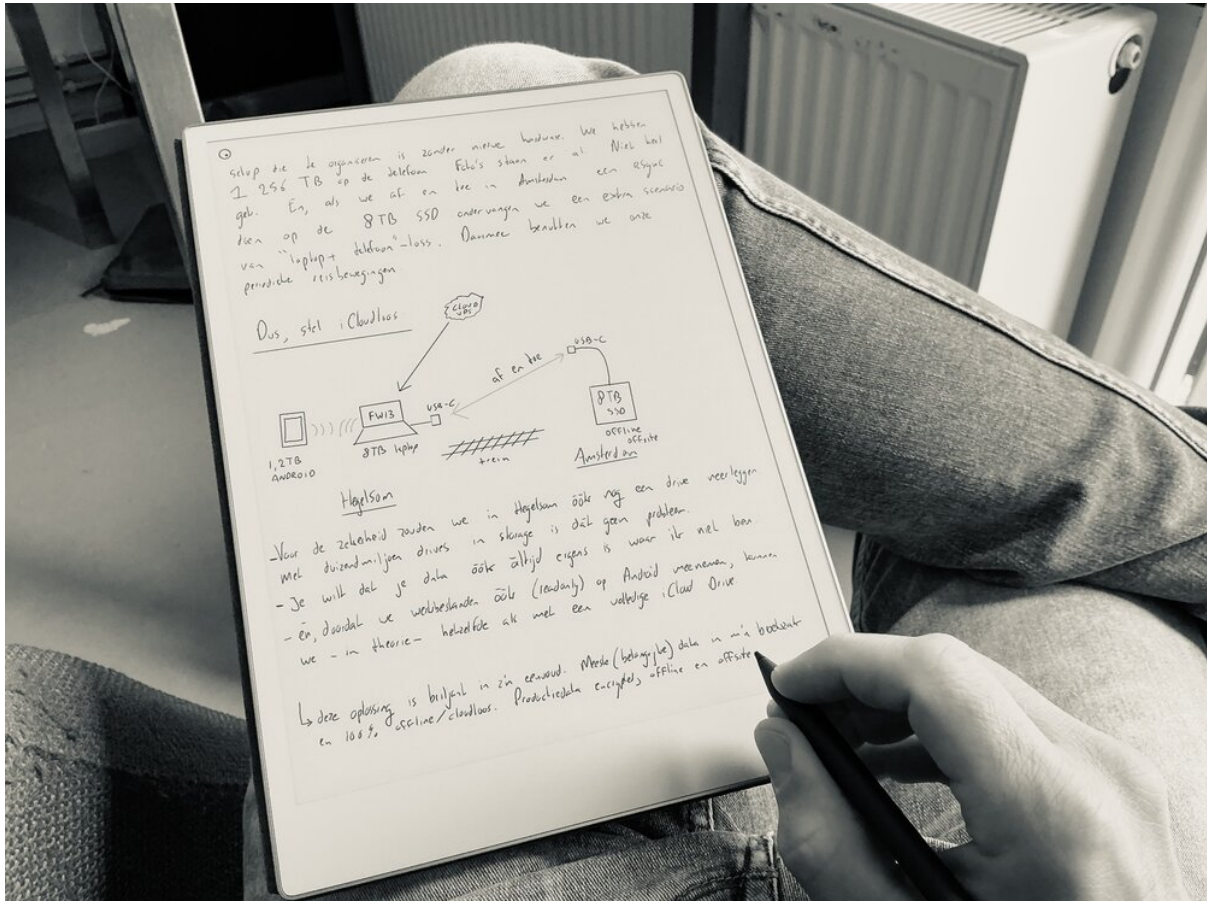 setup die te organiseren is zonder nieuwe hardware. We hebben
1.256 TB op de telefoon Foto's staan er al Niet heel
gek. En, als we af en toe in Amsterdam een rsync
doen op de 8TB SSD ondervangen we een extra scenario
van "laptop+ telefoon"-loss. Daarmee benutten we onze
periodieke reisbewegingen
Dus, stel iCloudloos
CLOUD
VPS
af en toe
USB-C
FW13
USB-C
8TB
SSD
offline
offsite
1,2TB
ANDROID
8TB laptop
trein
Amsterdam
Hegelsom
-Voor de zekerheid zouden we in Hegelsom óók nog een drive neerleggen
met duizendmiljoen drives in storage is dát geen probleem.
- Je wilt dat je data óók áltijd ergens is waar ik niet ben.
- én, doordat we werkbestanden óók (readonly) op Android meenemen, kunnen
we - in theorie - hetzelfde als met een volledige iCloud Drive
↳ deze oplossing is briljant in z'n eenvoud. Meeste (belangrijke) data in m'n broekzak
en 100% offline/cloudloos. Productiedata encrypted, offline en offsite